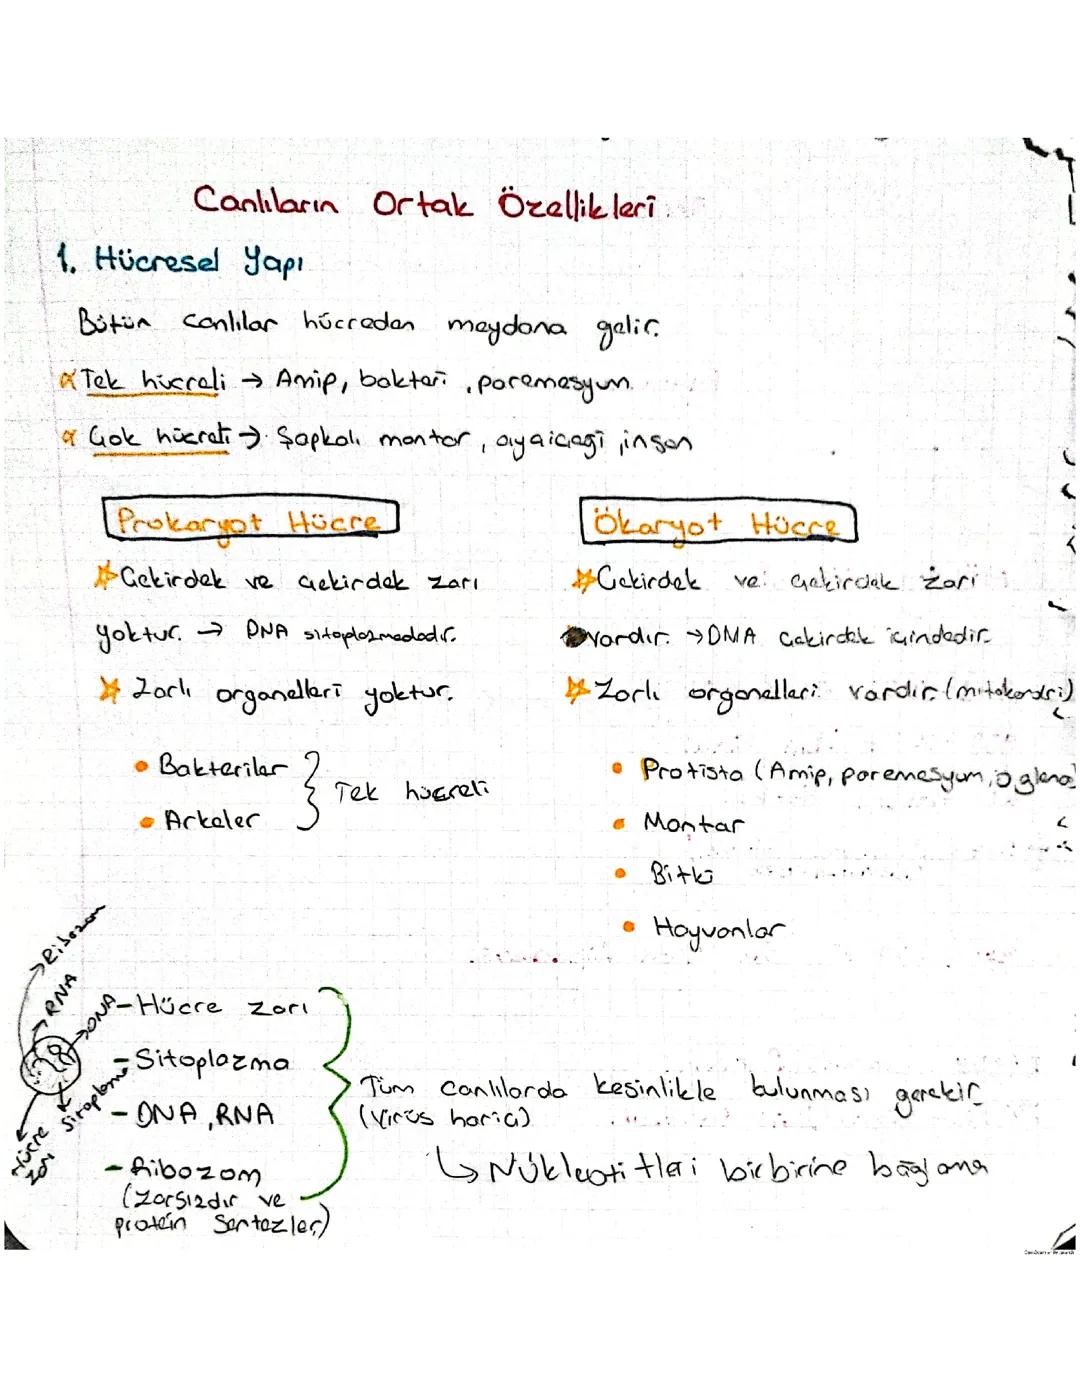 Canlıların Ortak Özellikleri
1. Hücresel Yapı
Bütün canlılar hücreden meydana gelir.
Tek hücreli → Amip, bakteri, paremesyum.
Çok hücreli → Şapkalı mantar, ayçiçeği, insan
Prokaryot Hücre
Çekirdek ve çekirdek zarı
yoktur. → DNA sitoplazmadadır.
Zarlı organelleri yoktur.
• Bakteriler
• Arkeler
Tek hücreli
Ökaryot Hücre
Çekirdek ve çekirdek zarı
vardır. → DNA çekirdek içindedir.
Zarlı organelleri vardır (mitokondri)
• Protista (Amip, paremesyum, öglena)
• Mantar
• Bitki
• Hayvanlar
Ribozom
RNA
DNA
Sitoplazma
Hücre zarı
- Hücre zarı
- Sitoplazma
- DNA, RNA
- Ribozom
(zarsızdır ve
protein sentezler)
Tüm canlılarda kesinlikle bulunması gerekir
(Virüs hariç)
↳ Nükleotitleri birbirine bağlama